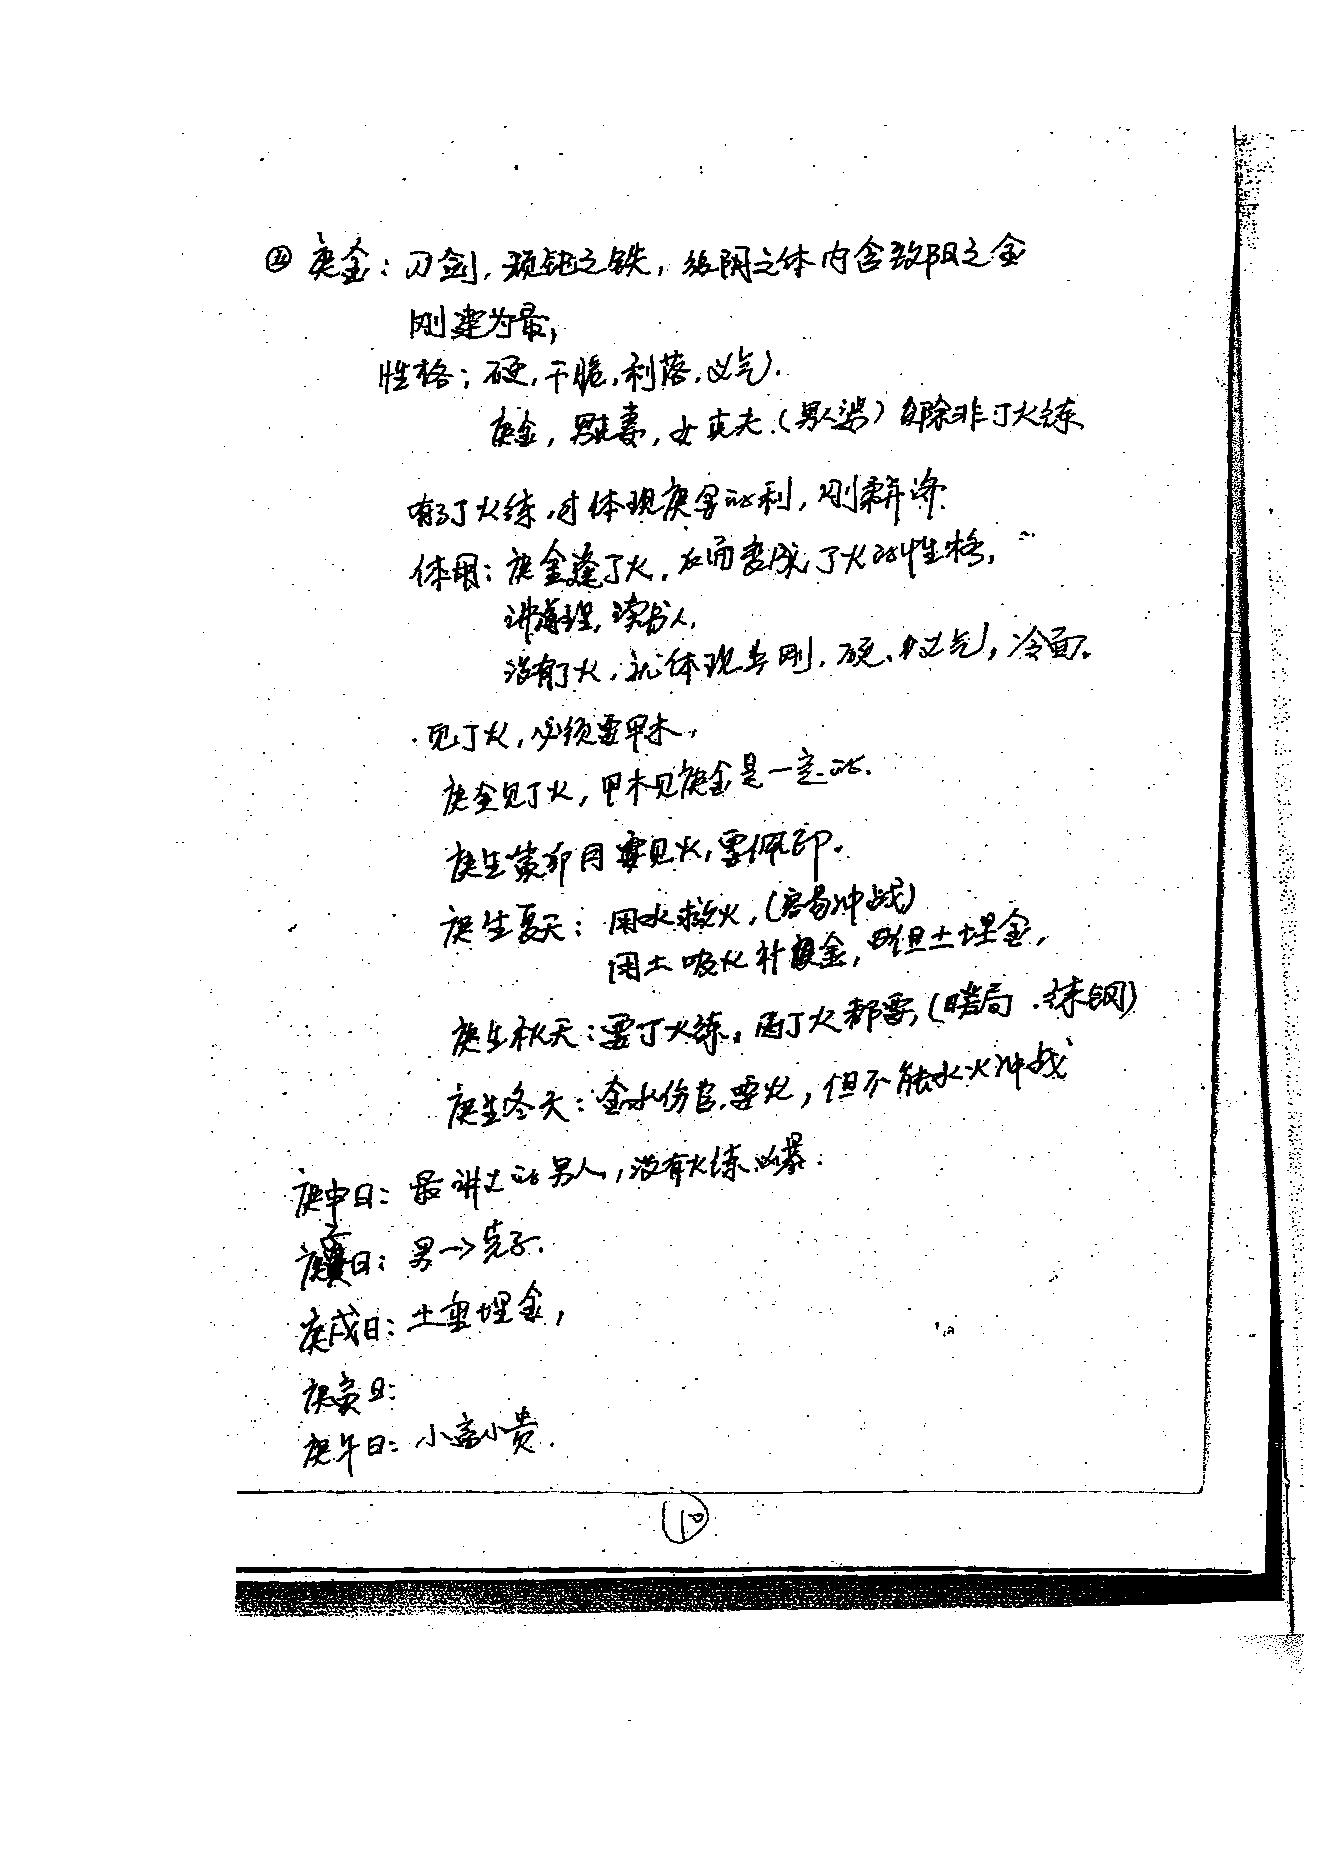 ⑤ 庚金：刀剑，顽钝之铁，纯阴之体内含致阳之金
刚建为最，
性格：硬，干脆，利落，义气．
庚金，男克妻，女克夫．（男人婆）除非丁火练
有了丁火练，才体现庚金的利，刚柔并济．
体用：庚金逢丁火，反而变成丁火的性格，
讲道理，读书人，
没有丁火，就体现为刚，硬、义气，冷面。
．见丁火，必须要甲木，
庚金见丁火，甲木见庚金是一定的．
庚生寅卯月要见火，要佩印。
庚生夏天：用水救火，（容易冲战）
用土吸火补庚金，但土埋金，
庚生秋天：要丁火练，丙丁火都要，（暗局．炼钢）
庚生冬天：金水伤官．要火，但不能水火冲战
庚申日：最讲义的男人，没有火练凶暴．
庚子日：男→克子．
庚戌日：土重埋金，
庚寅日：
庚午日：小富小贵．
⑩